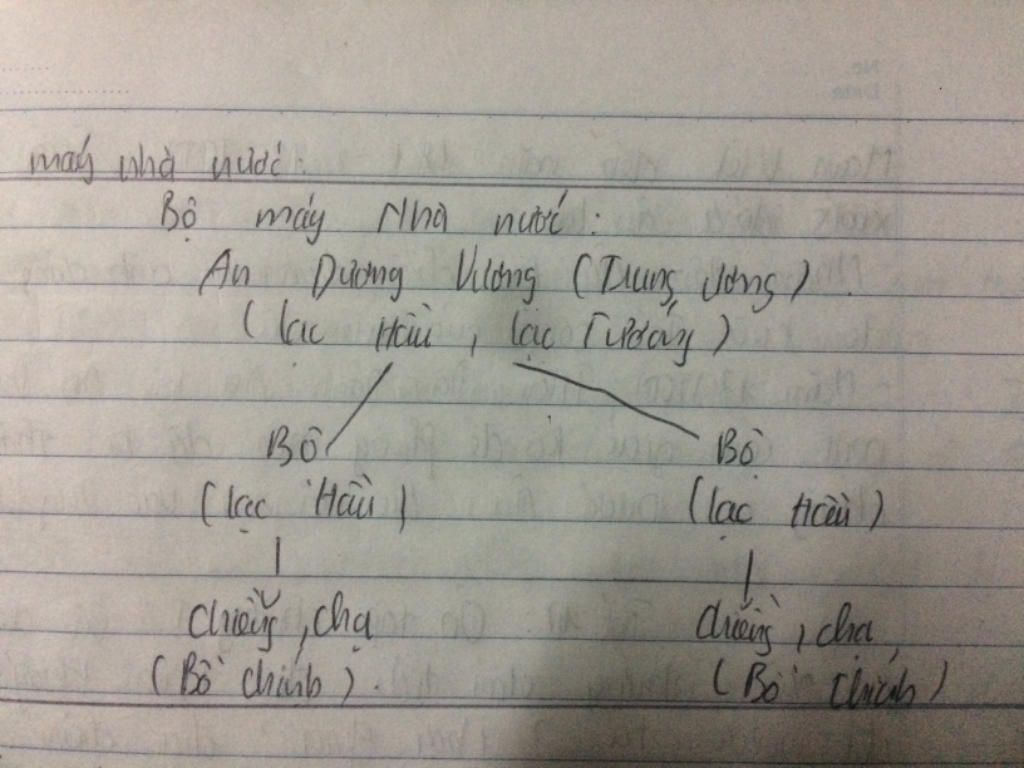 máy nhà nước:
Bộ máy Nhà nước:
An Dương Vương (Trung ương)
(Lạc Hầu, Lạc Tướng)
Bộ Bộ
(Lạc Hầu) (Lạc Hầu)
chiềng, chạ chiềng, chạ
(Bồ chính). (Bồ chính)